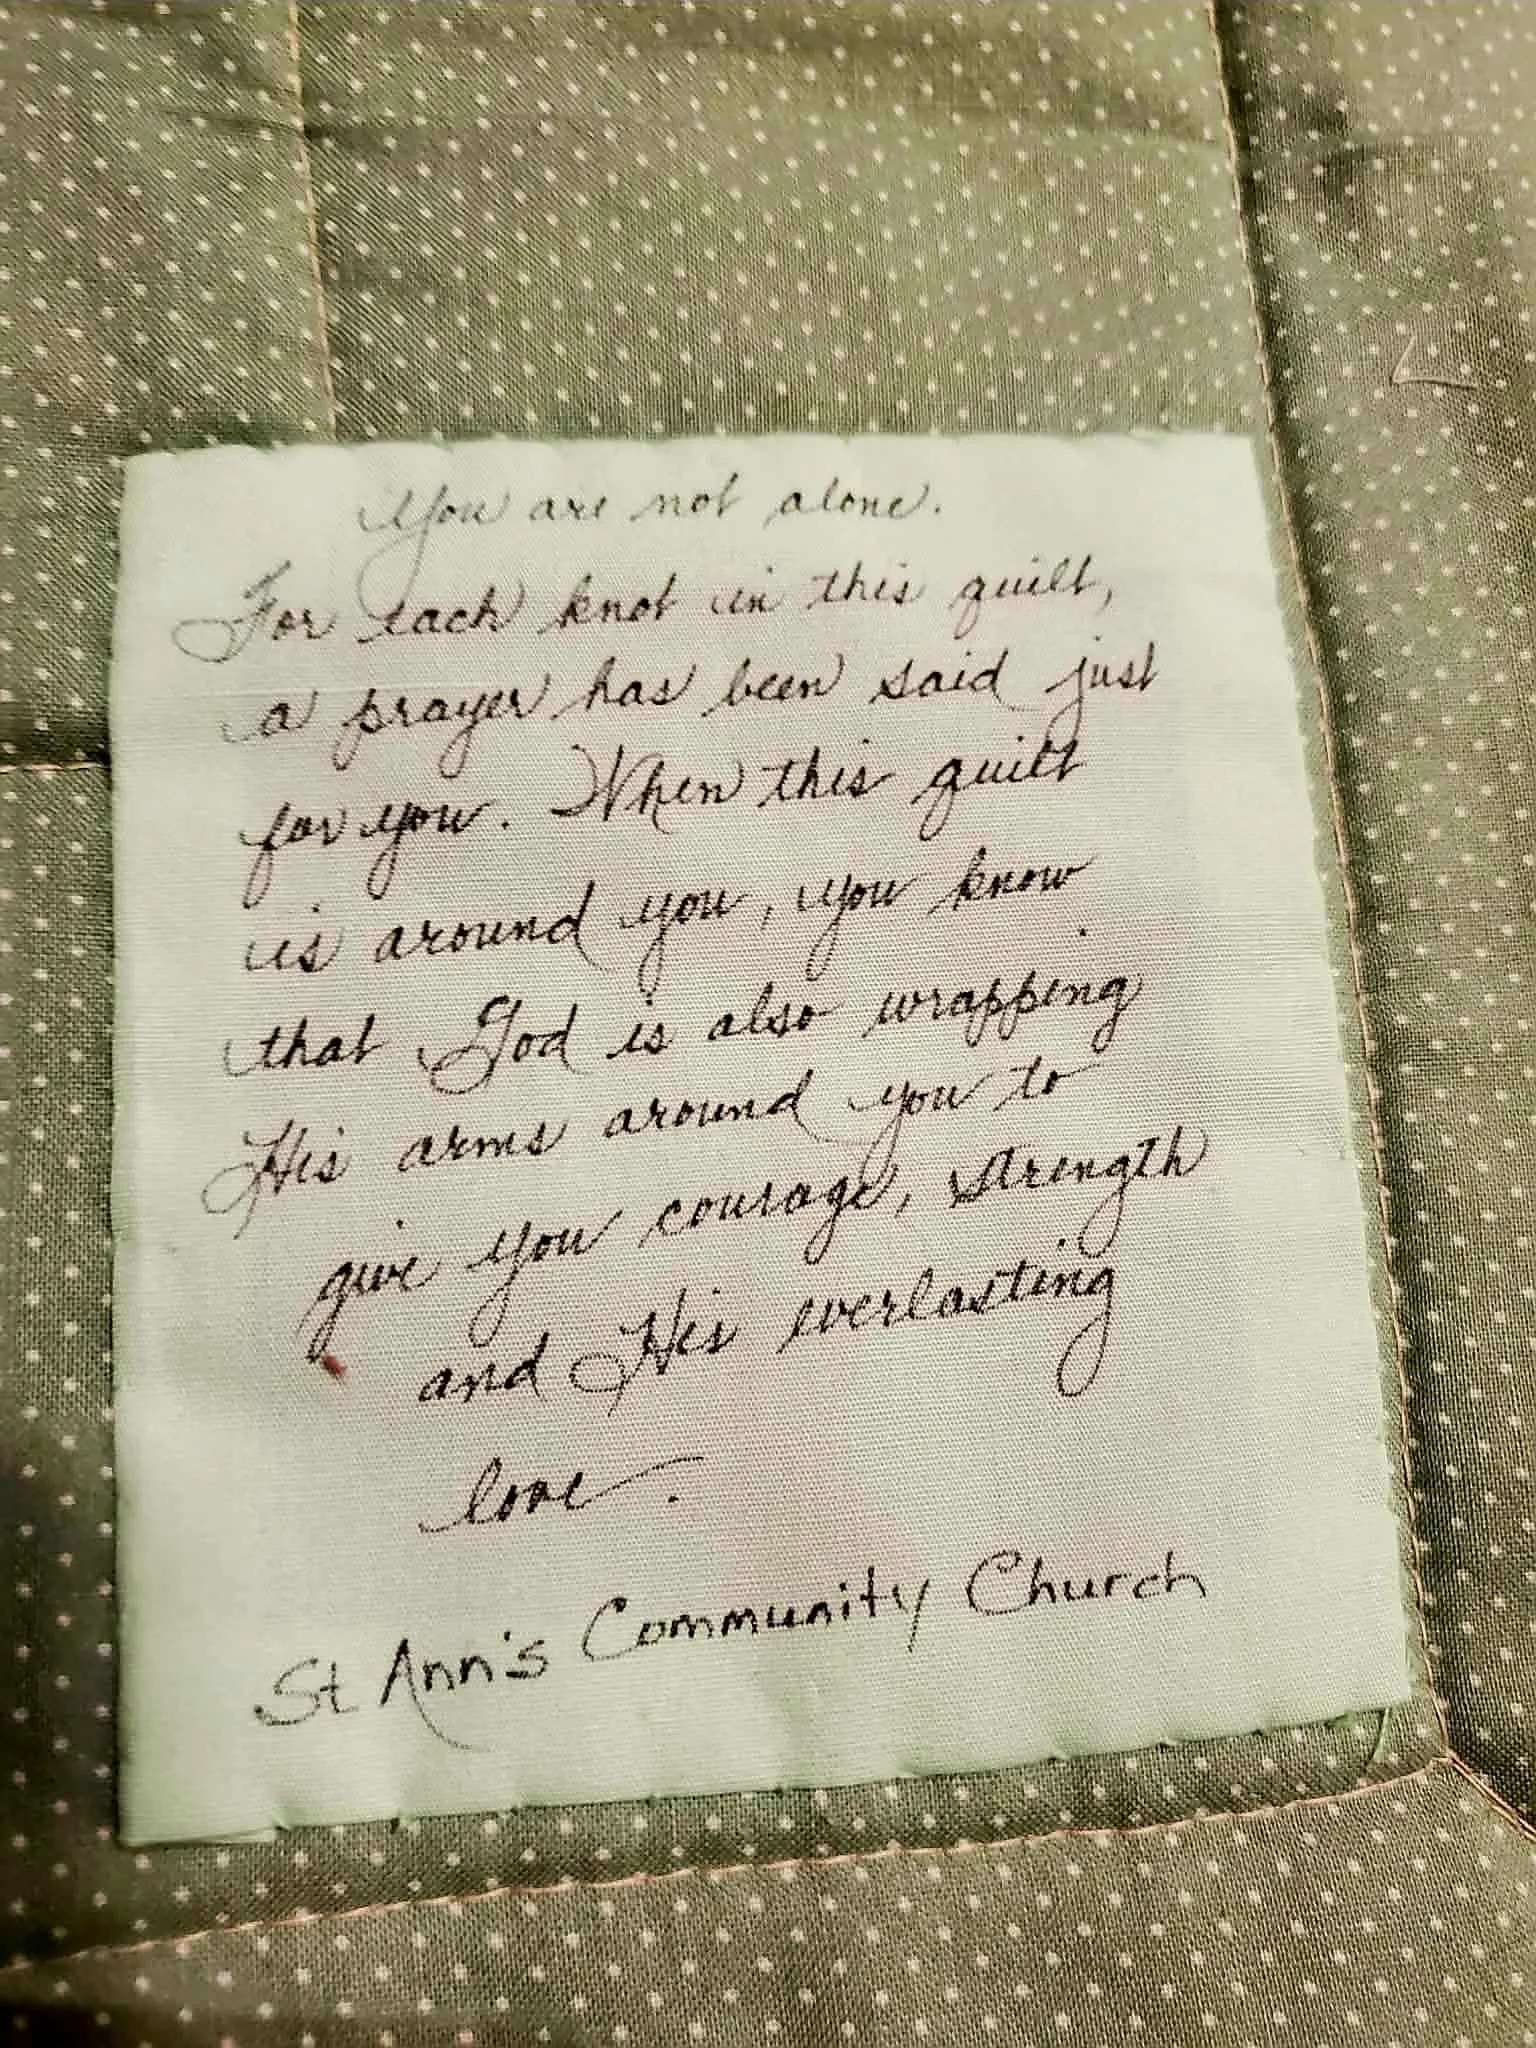 You are not alone.
For each knot in this quilt,
a prayer has been said just
for you. When this quilt
is around you, you know
that God is also wrapping
His arms around you to
give you courage, strength
and His everlasting
love.
St Ann's Community Church